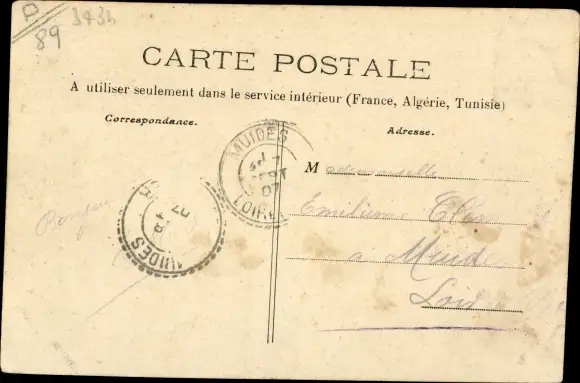 3431
89
CARTE POSTALE
A utiliser seulement dans le service intérieur (France, Algérie, Tunisie)
Correspondance.
Adresse.
MUIDES
SEPT
07
LOIR
Mademoiselle
Emilienne
a Muide
Bonjour
07
MUIDES